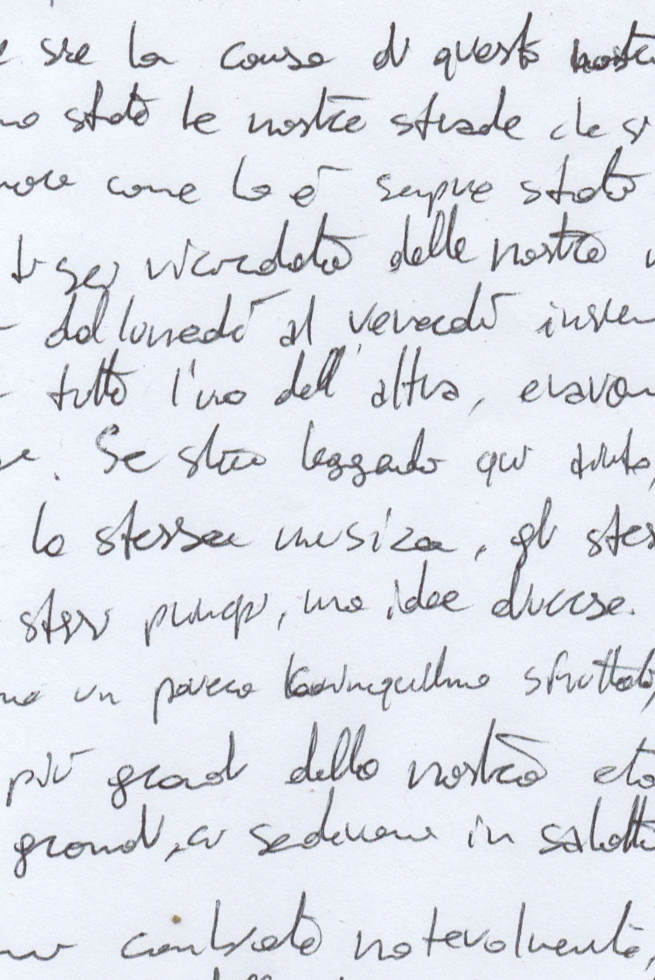 sia la causa di questo nostr
no state le nostre strade che s
come lo è sempre stato
ti sei ricordata delle nostre
dal lunedì al venerdì insiem
tutto l'uno dell'altra, eravam
Se stai leggendo qui dentro,
la stessa musica, gli stes
stessi principi, ma idee diverse.
un povero sfruttato,
più grandi della nostra età
grandi, ci sedevamo in salotto
cambiata notevolmente,